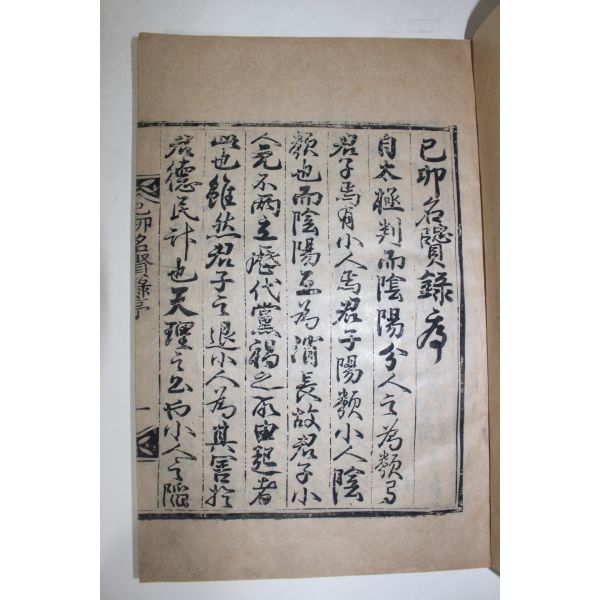 己卯名賢錄序
自太極判而陰陽分人之為類有
君子焉有小人焉君子陽類小人陰
類也而陰陽互為消長故君子小
人竟不兩立歷代黨禍之所由起者
此也雖然君子之退小人為其害於
君德民計也天理之公也小人之陷
己卯名賢錄序
一